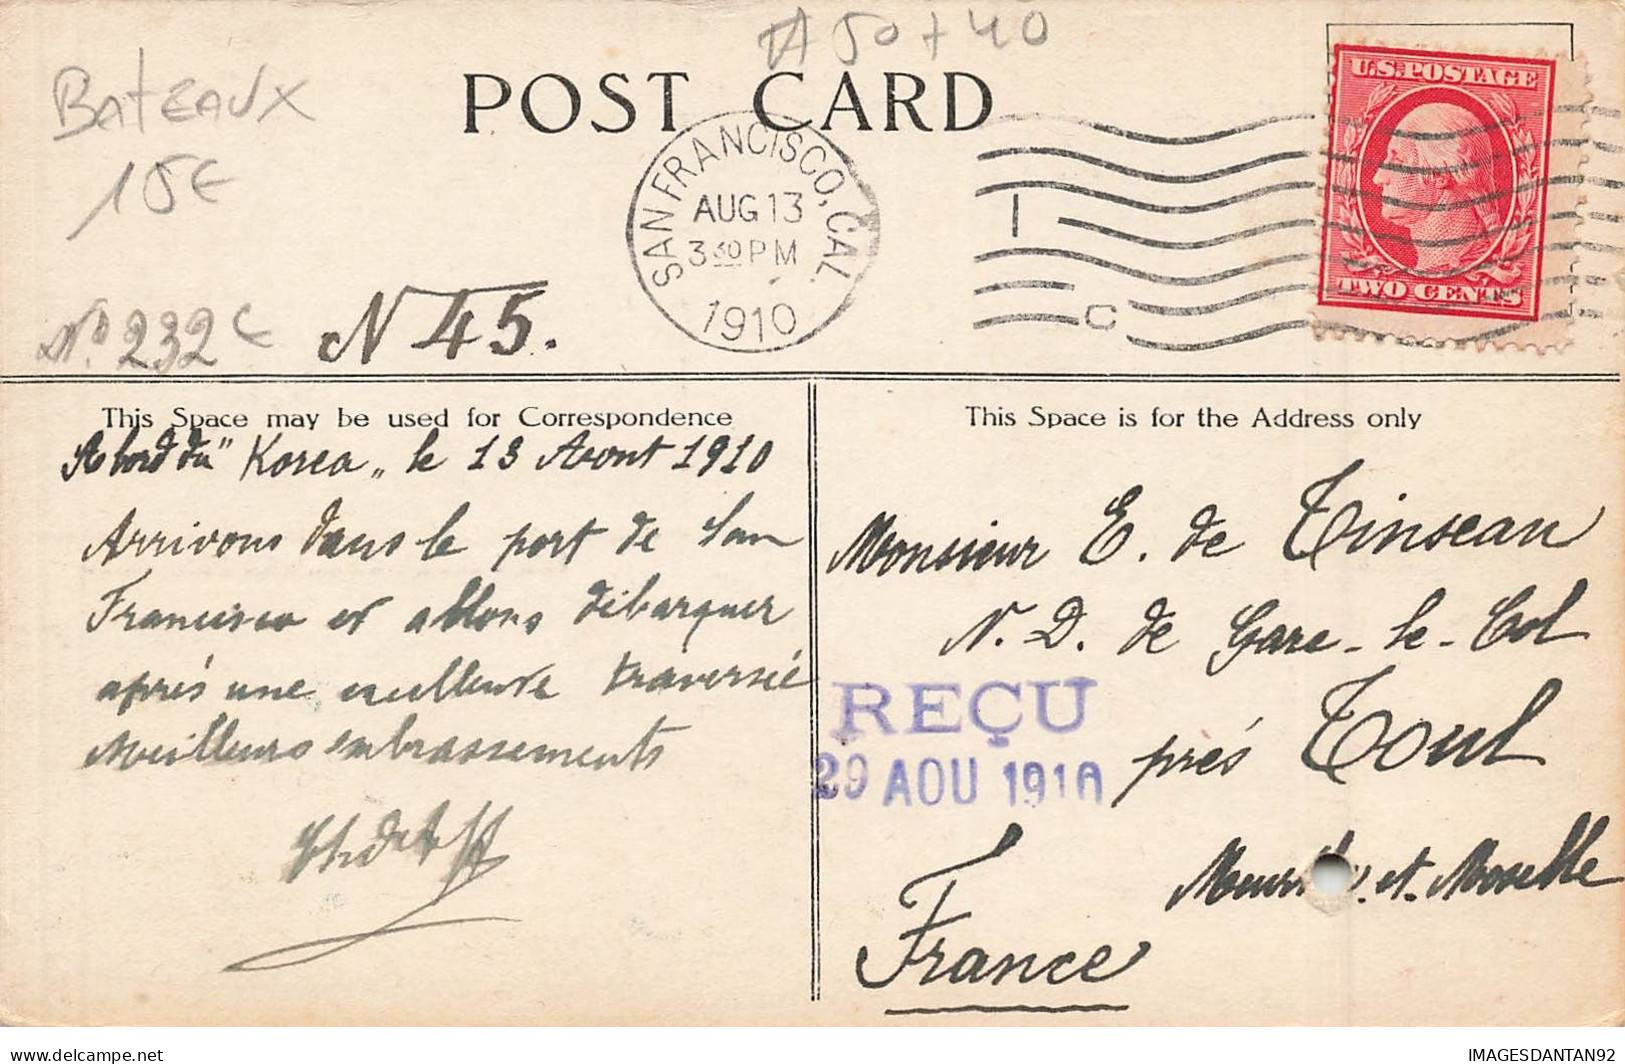 A 50 + 40
BATEAUX
15€
POST CARD
U.S. POSTAGE
TWO CENTS
SAN FRANCISCO, CAL.
AUG 13
3 30 PM
1910
1
C
No 232 c
N 45.
This Space may be used for Correspondence
This Space is for the Address only
A bord du "Korea" le 13 Aout 1910
Arrivons dans le port de San
Francisco et allons débarquer
après une excellente traversée
Meilleurs embrassements
Monsieur E. de Tinseau
N. D. de Gare-le-Col
près Toul
Meurthe et Moselle
France
REÇU
29 AOU 1910
IMAGESDANTAN92